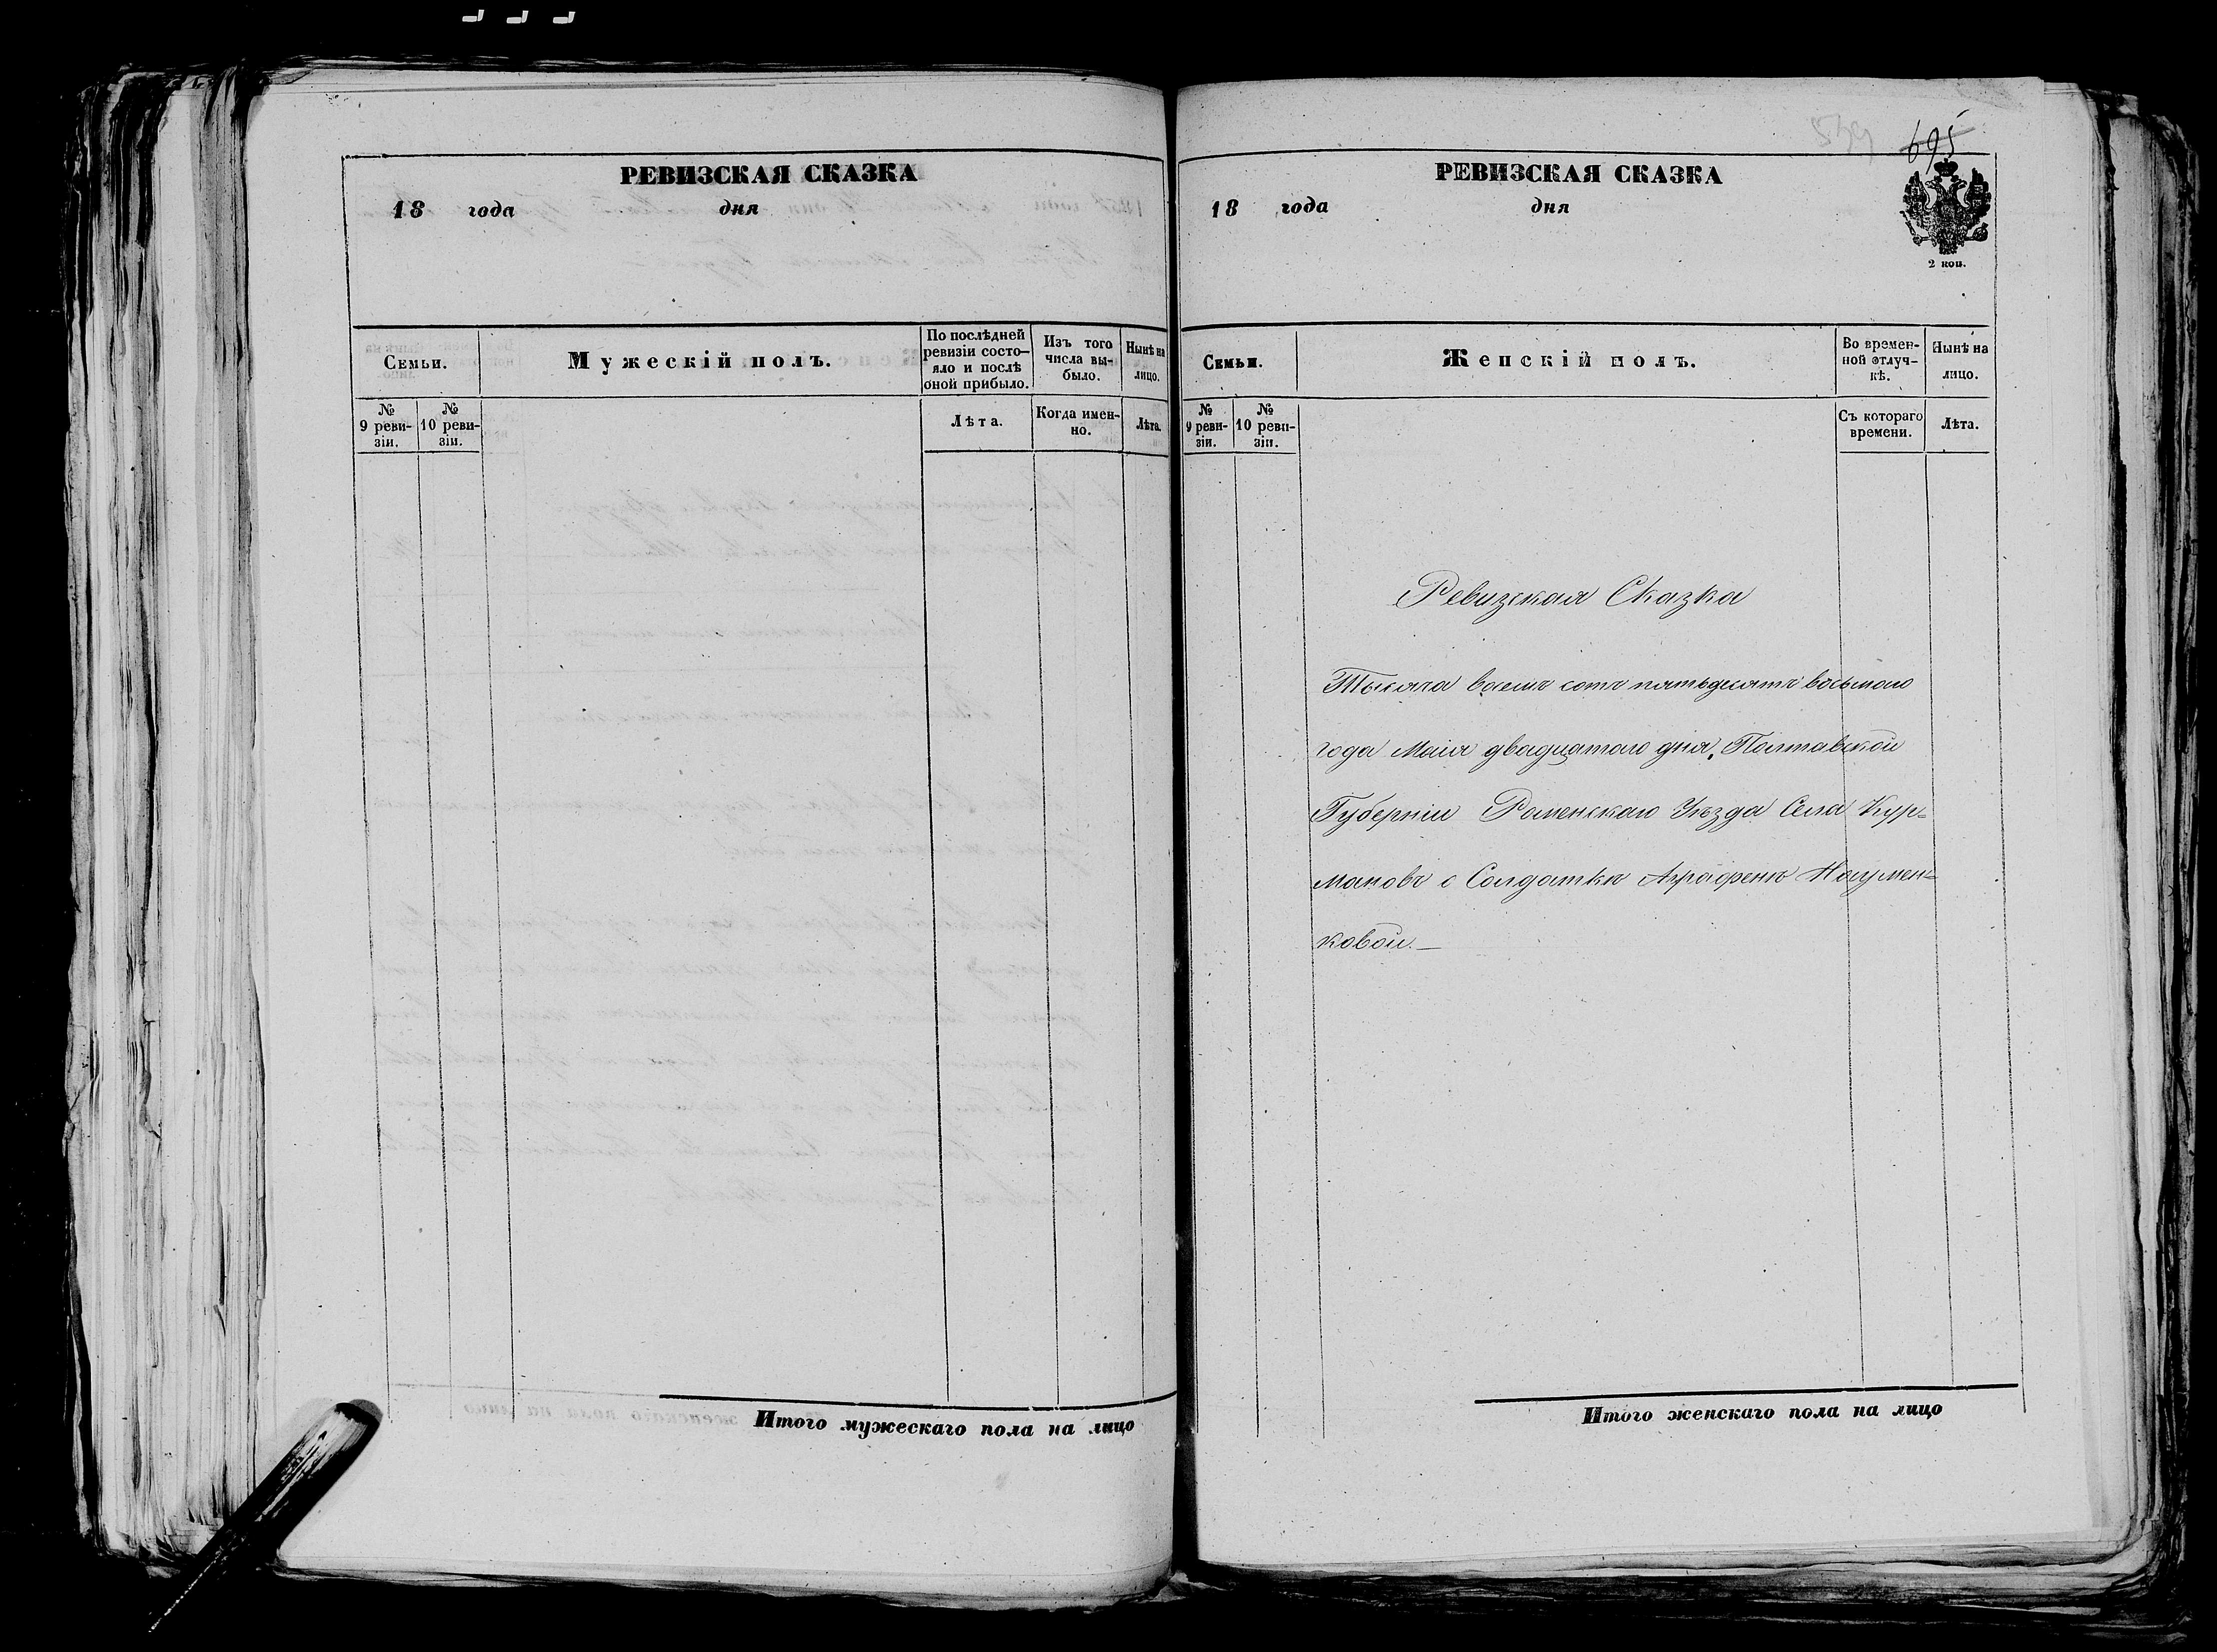 РЕВИЗСКАЯ СКАЗКА
18 года дня
Семьи.
Мужескій полъ.
По послѣдней
ревизіи состо-
яло и послѣ
оной прибыло.
Изъ того
числа вы-
было.
Нынѣ на
лицо.
№
9 реви-
зіи.
№
10 реви-
зіи.
Лѣта.
Когда имен-
но.
Лѣта.
Итого мужескаго пола на лицо
695
РЕВИЗСКАЯ СКАЗКА
18 года дня
2 коп.
Семьи.
Женскій полъ.
Во времен-
ной отлуч-
кѣ.
Нынѣ на
лицо.
№
9 реви-
зіи.
№
10 реви-
зіи.
Съ котораго
времени.
Лѣта.
Ревизская Сказка
Тысяча восемъ сотъ пятьдесятъ восьмого
года Маія двадцатаго дня, Полтавской
Губерніи Роменскаго Уѣзда Села Кур=
мановъ о Солдаткѣ Аграфенѣ Наумен=
ковой.—
Итого женскаго пола на лицо